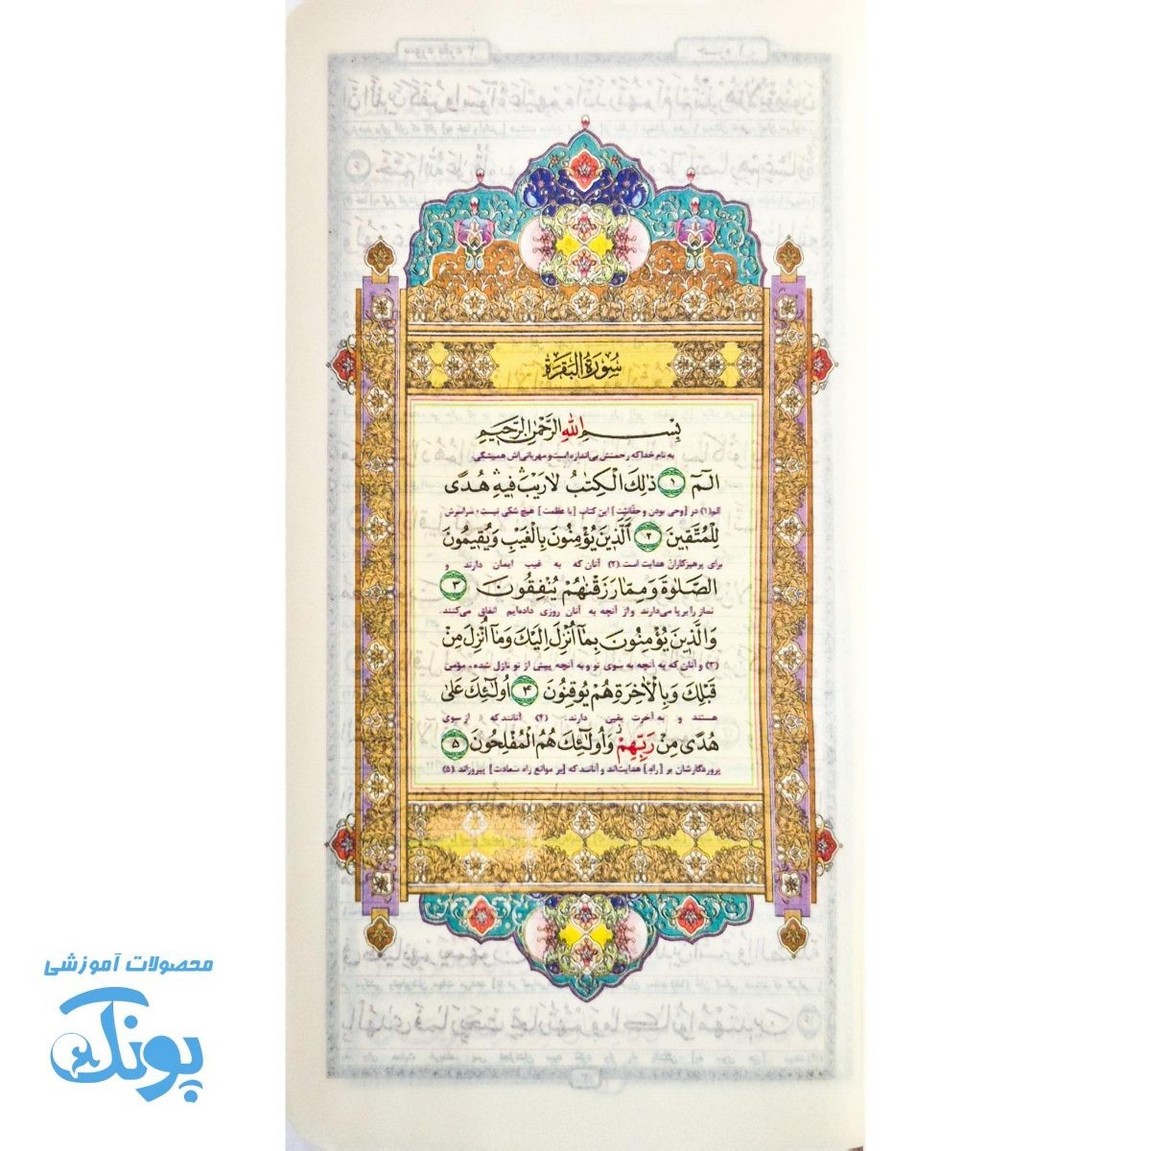 سُورَةُ الْبَقَرَة
بِسْمِ اللهِ الرَّحْمٰنِ الرَّحِيمِ
به نام خدا که رحمتش بی‌اندازه است و مهربانی‌اش همیشگی
الٓمٓ ۱ ذٰلِكَ الْكِتٰبُ لَا رَيْبَ فِيهِ هُدًى
الم(۱) در [وحی بودن و حقّانیّت] این کتابِ [با عظمت] هیچ شکی نیست؛ سراسرش
لِلْمُتَّقِينَ ۲ اَلَّذِينَ يُؤْمِنُونَ بِالْغَيْبِ وَيُقِيمُونَ
برای پرهیزکاران هدایت است (۲) آنان که به غیب ایمان دارند و
الصَّلٰوةَ وَمِمَّا رَزَقْنٰهُمْ يُنْفِقُونَ ۳
نماز را برپا می‌دارند و از آنچه به آنان روزی داده‌ایم انفاق می‌کنند
وَالَّذِينَ يُؤْمِنُونَ بِمَآ اُنْزِلَ اِلَيْكَ وَمَآ اُنْزِلَ مِنْ
(۳) و آنان که به آنچه به سوی تو و به آنچه پیش از تو نازل شده، مؤمن
قَبْلِكَ وَبِالْاٰخِرَةِ هُمْ يُوقِنُونَ ۴ اُولٰٓئِكَ عَلٰى
هستند و به آخرت یقین دارند. (۴) آنانند که از سوی
هُدًى مِنْ رَبِّهِمْ وَاُولٰٓئِكَ هُمُ الْمُفْلِحُونَ ۵
پروردگارشان بر [راهِ] هدایت‌اند و آنانند که [بر موانع راه سعادت] پیروزاند (۵)
محصولات آموزشی
پونک